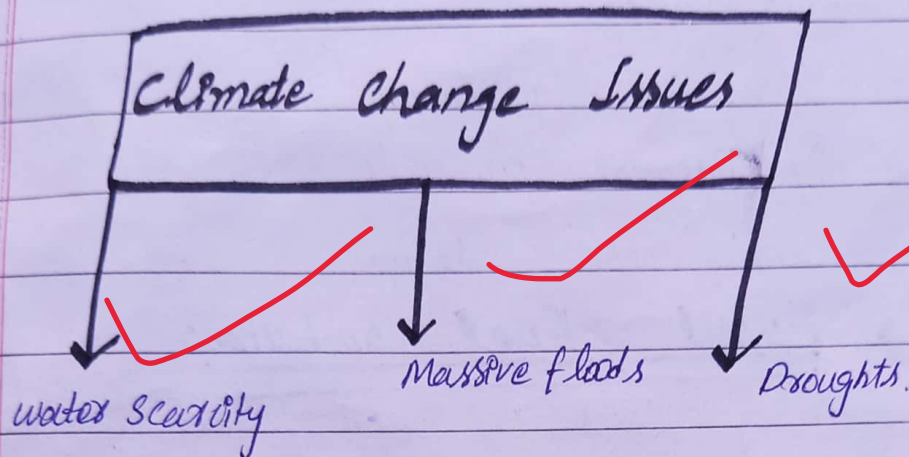 Climate Change Issues
water Scarcity
Massive floods
Droughts.